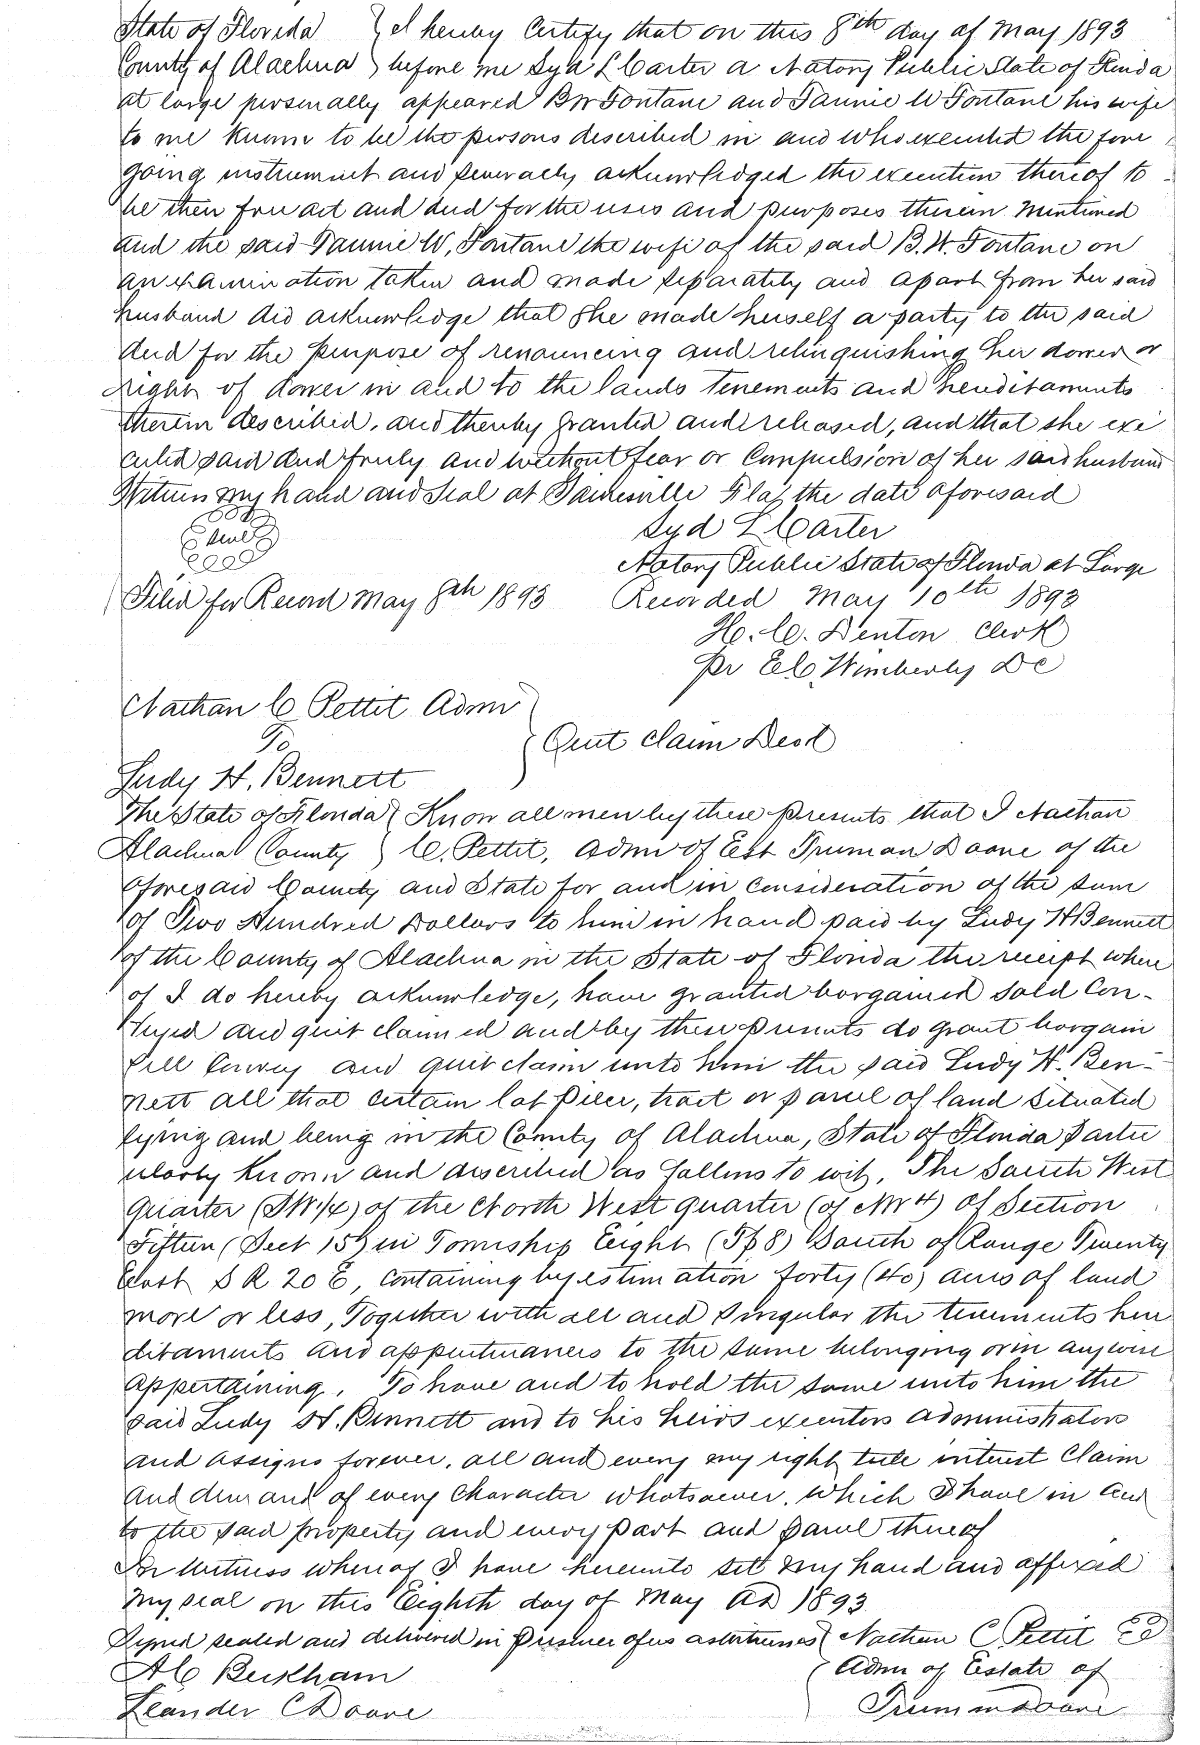 State of Florida } I hereby Certify that on this 8th day of May 1893
County of Alachua } before me Syd L Carter a Notary Public State of Florida
at large personally appeared B W Fontane and Fannie W Fontane his wife
to me known to be the persons described in and who executed the fore
going instrument and severally acknowledged the execution thereof to
be their free act and deed for the uses and purposes therein mentioned
and the said Fannie W. Fontane the wife of the said B. W. Fontane on
an examination taken and made separately and apart from her said
husband did acknowledge that she made herself a party to the said
deed for the purpose of renouncing and relinquishing her dower or
right of dower in and to the lands tenements and hereditaments
therein described, and thereby granted and released, and that she exe
cuted said deed freely and without fear or Compulsion of her said husband
Witness my hand and Seal at Gainesville Fla, the date aforesaid
Seal
Syd L Carter
Notary Public State of Florida at Large
Filed for Record May 8th 1893 Recorded May 10th 1893
H. C. Denton Clerk
Pr E C Wimberly D C
Nathan C Pettit Admr
To } Quit Claim Deed
Ludy H. Bennett
The State of Florida } Know all men by these presents that I Nathan
Alachua County } C. Pettit, Admr of Est Truman Doane of the
aforesaid County and State for and in Consideration of the sum
of Two Hundred Dollars to him in hand paid by Ludy H Bennett
of the County of Alachua in the State of Florida the receipt where
of I do hereby acknowledge, have granted bargained sold Con-
veyed and quit claimed and by these presents do grant bargain
sell Convey and quit claim unto him the said Ludy H. Ben-
nett all that certain lot piece, tract or parcel of land situated
lying and being in the County of Alachua, State of Florida partic
ularly known and described as follows to wit, The South West
quarter (SW 1/4) of the North West quarter (of NW 4) of Section
Fifteen (Sect 15) in Township Eight (Tp 8) South of Range Twenty
East S R 20 E, containing by estimation forty (40) acres of land
more or less, Together with all and singular the tenements here
ditaments and appurtenances to the same belonging or in anywise
appertaining. To have and to hold the same unto him the
said Ludy H. Bennett and to his heirs executors administrators
and assigns forever, all and every my right title interest Claim
and demand of every Character whatsoever, which I have in and
to the said property and every part and parcel thereof
In Witness whereof I have hereunto set my hand and affixed
my seal on this Eighth day of May AD 1893
Signed sealed and delivered in presence of us as witnesses } Nathan C Pettit
A C Beckham } Admr of Estate of
Leander C Doane Truman Doane